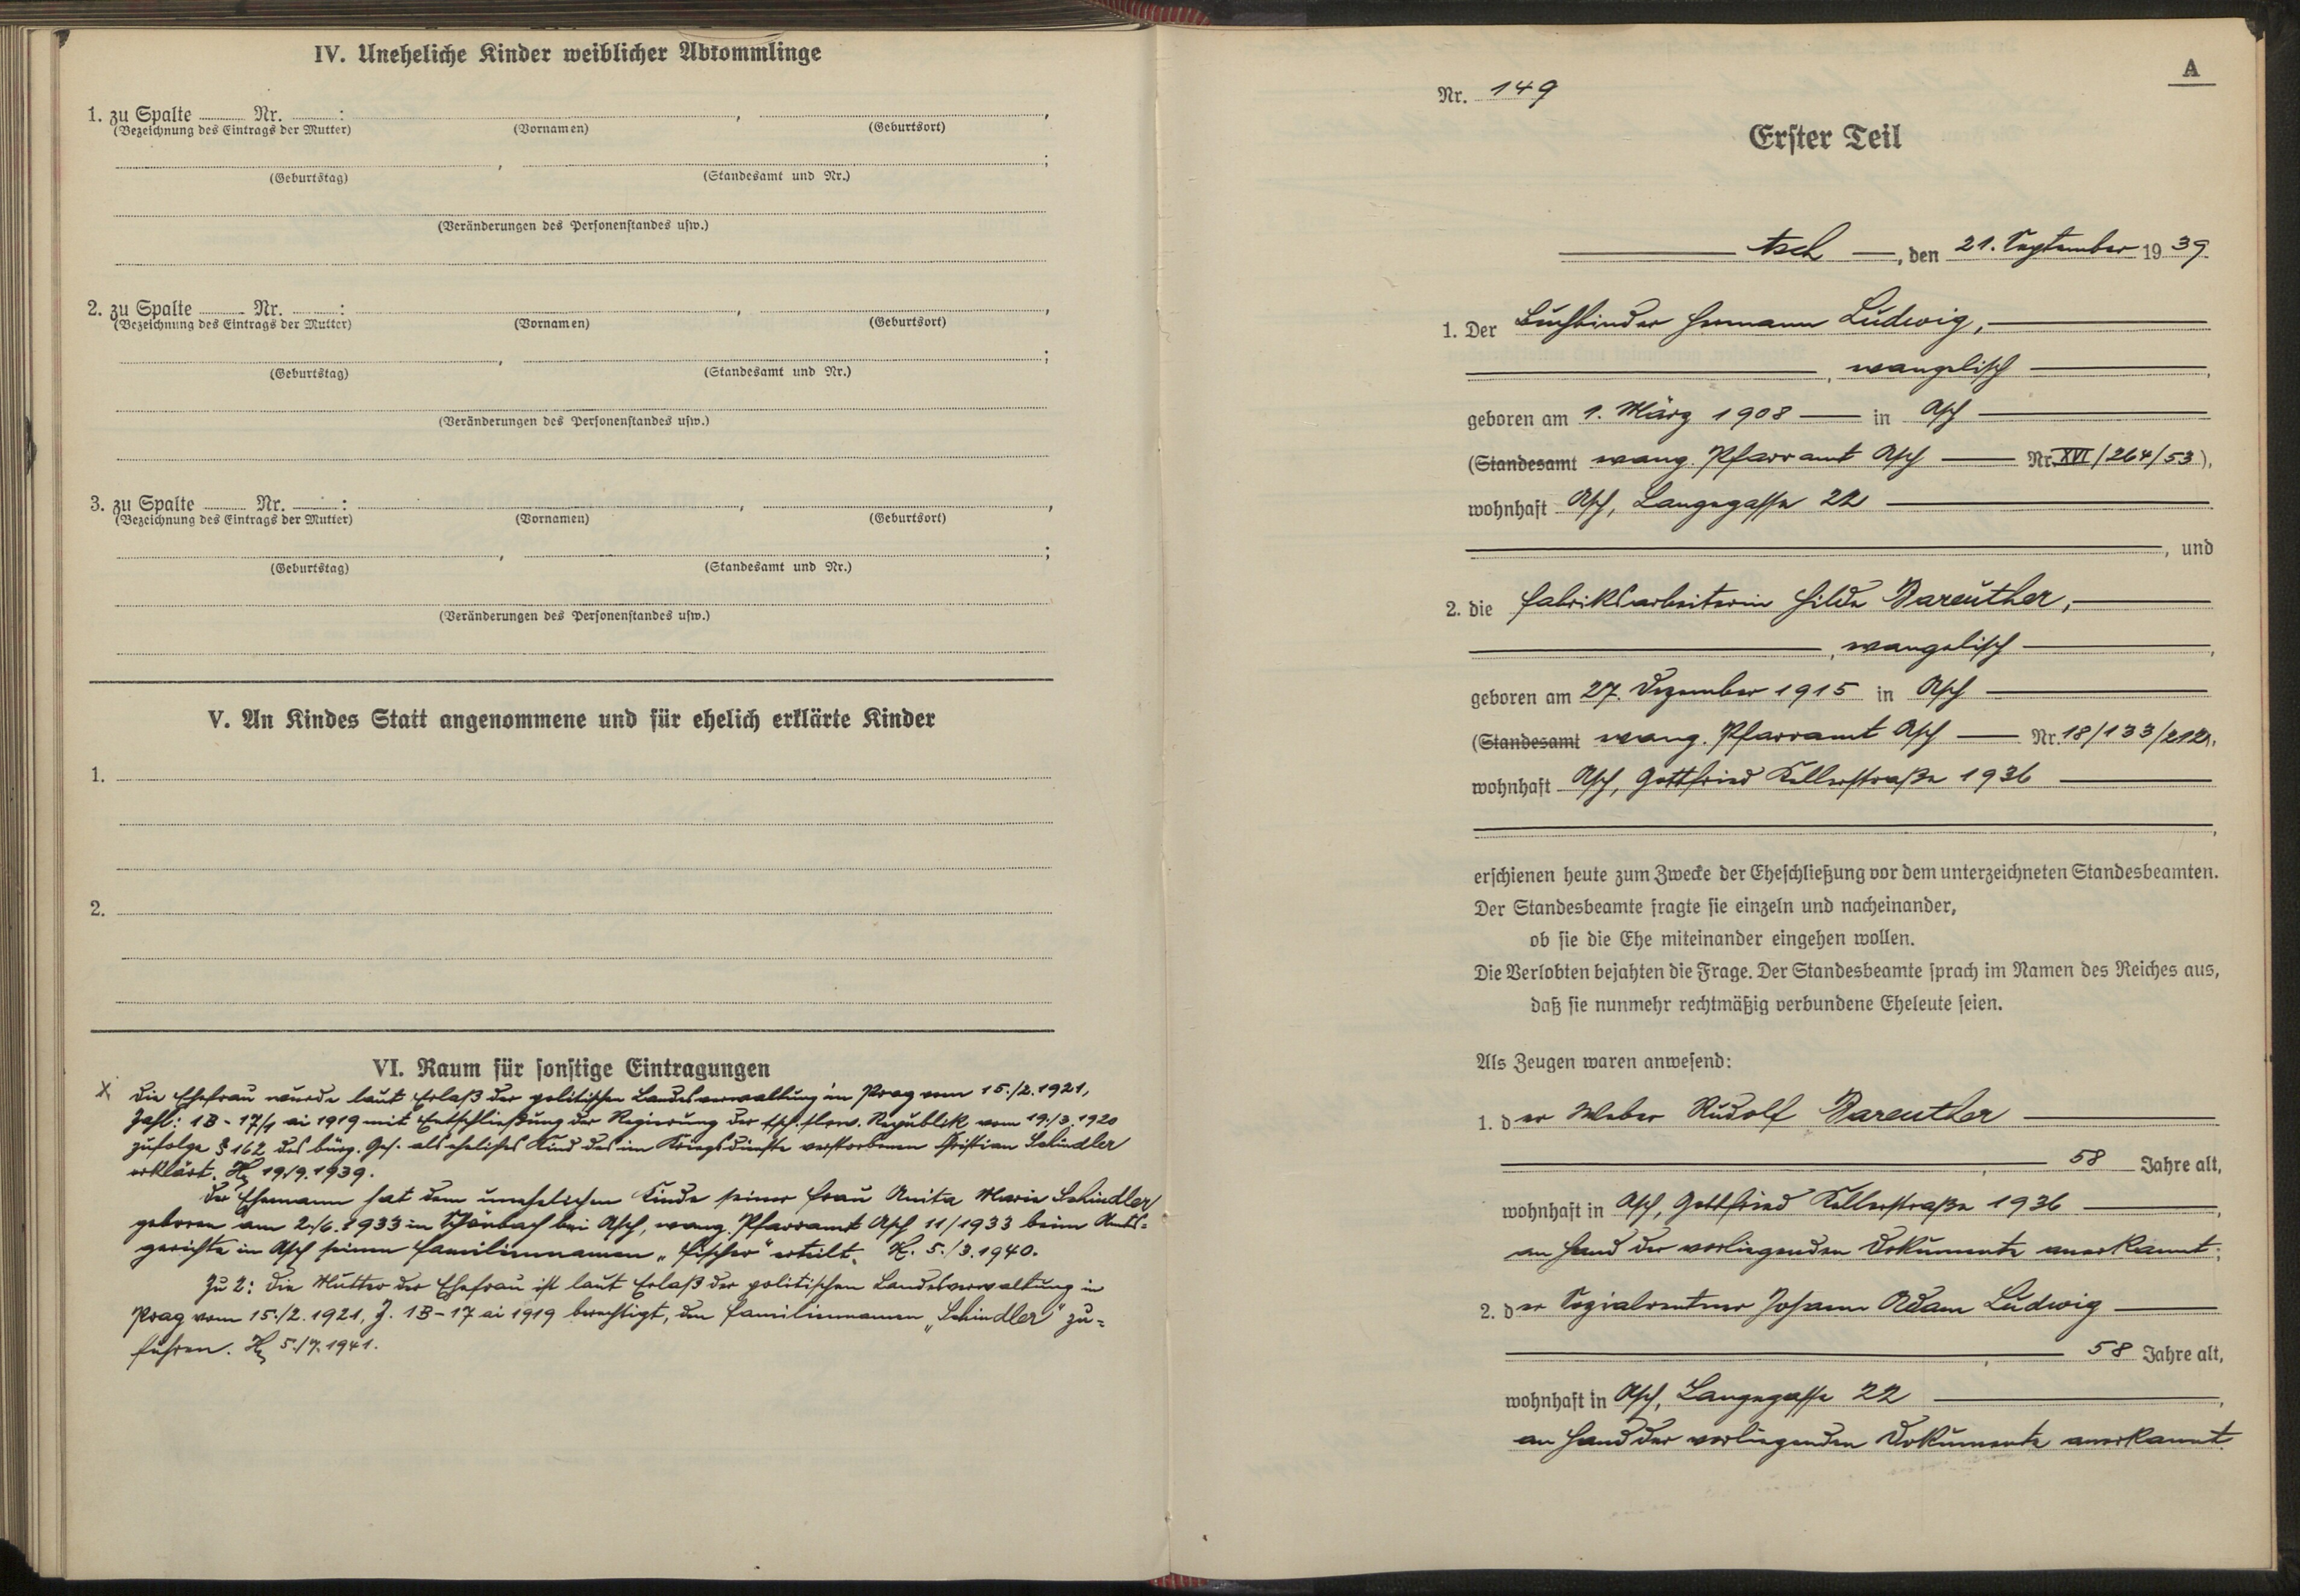 IV. Uneheliche Kinder weiblicher Abkömmlinge
1. zu Spalte Nr. : , ,
(Bezeichnung des Eintrags der Mutter) (Vornamen) (Geburtsort)
, ;
(Geburtstag) (Standesamt und Nr.)
(Veränderungen des Personenstandes usw.)
2. zu Spalte Nr. : , ,
(Bezeichnung des Eintrags der Mutter) (Vornamen) (Geburtsort)
, ;
(Geburtstag) (Standesamt und Nr.)
(Veränderungen des Personenstandes usw.)
3. zu Spalte Nr. : , ,
(Bezeichnung des Eintrags der Mutter) (Vornamen) (Geburtsort)
, ;
(Geburtstag) (Standesamt und Nr.)
(Veränderungen des Personenstandes usw.)
V. An Kindes Statt angenommene und für ehelich erklärte Kinder
1.
2.
VI. Raum für sonstige Eintragungen
X Die Ehefrau wurde laut Erlaß der politischen Landesverwaltung in Prag vom 15./2.1921,
Zahl: 1B-17/1 ai 1919 mit Entschließung der Regierung der tsch. slow. Republik vom 19./3.1920
zufolge § 162 des bürg. Ges. als eheliches Kind des im Kriegsdienste verstorbenen Christian Schindler
erklärt. 19./9.1939.
Der Ehemann hat dem unehelichen Kinde seiner Frau Anita Marie Schindler,
geboren am 2./6.1933 in Schönbach bei Asch, evang. Pfarramt Asch 11/1933 beim Amts=
gerichte in Asch seinen Familiennamen „Fischer" erteilt. H. 5./3.1940.
Zu 2: Die Mutter der Ehefrau ist laut Erlaß der politischen Landesverwaltung in
Prag vom 15./2.1921, Z. 1B-17 ai 1919 berechtigt, den Familiennamen „Schindler" zu=
führen. 5./7.1941.
A
Nr. 149
Erster Teil
Asch, den 21. September 1939
1. Der Buchbinder Hermann Ludwig,
, evangelisch,
geboren am 1. März 1908 in Asch
(Standesamt evang. Pfarramt Asch Nr. XVI/264/53),
wohnhaft Asch, Langegasse 22
, und
2. die Fabriksarbeiterin Hilde Bareuther,
, evangelisch,
geboren am 27. Dezember 1915 in Asch
(Standesamt evang. Pfarramt Asch Nr. 18/133/212),
wohnhaft Asch, Gottfried Kellerstraße 1936
,
erschienen heute zum Zwecke der Eheschließung vor dem unterzeichneten Standesbeamten.
Der Standesbeamte fragte sie einzeln und nacheinander,
ob sie die Ehe miteinander eingehen wollen.
Die Verlobten bejahten die Frage. Der Standesbeamte sprach im Namen des Reiches aus,
daß sie nunmehr rechtmäßig verbundene Eheleute seien.
Als Zeugen waren anwesend:
1. der Weber Rudolf Bareuther
, 58 Jahre alt,
wohnhaft in Asch, Gottfried Kellerstraße 1936,
an Hand der vorliegenden Dokumente anerkannt;
2. der Sozialrentner Johann Adam Ludwig
, 58 Jahre alt,
wohnhaft in Asch, Langegasse 22,
an Hand der vorliegenden Dokumente anerkannt.